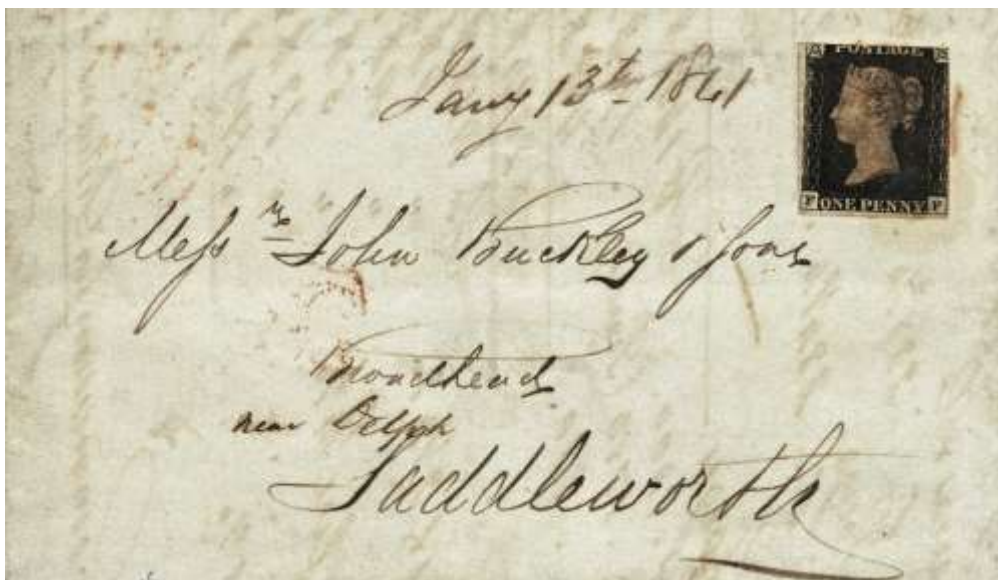 Jany 13th 1841
POSTAGE
F ONE PENNY F
Messrs John Buckley & Sons
Broadhead
near Delph
Saddleworth